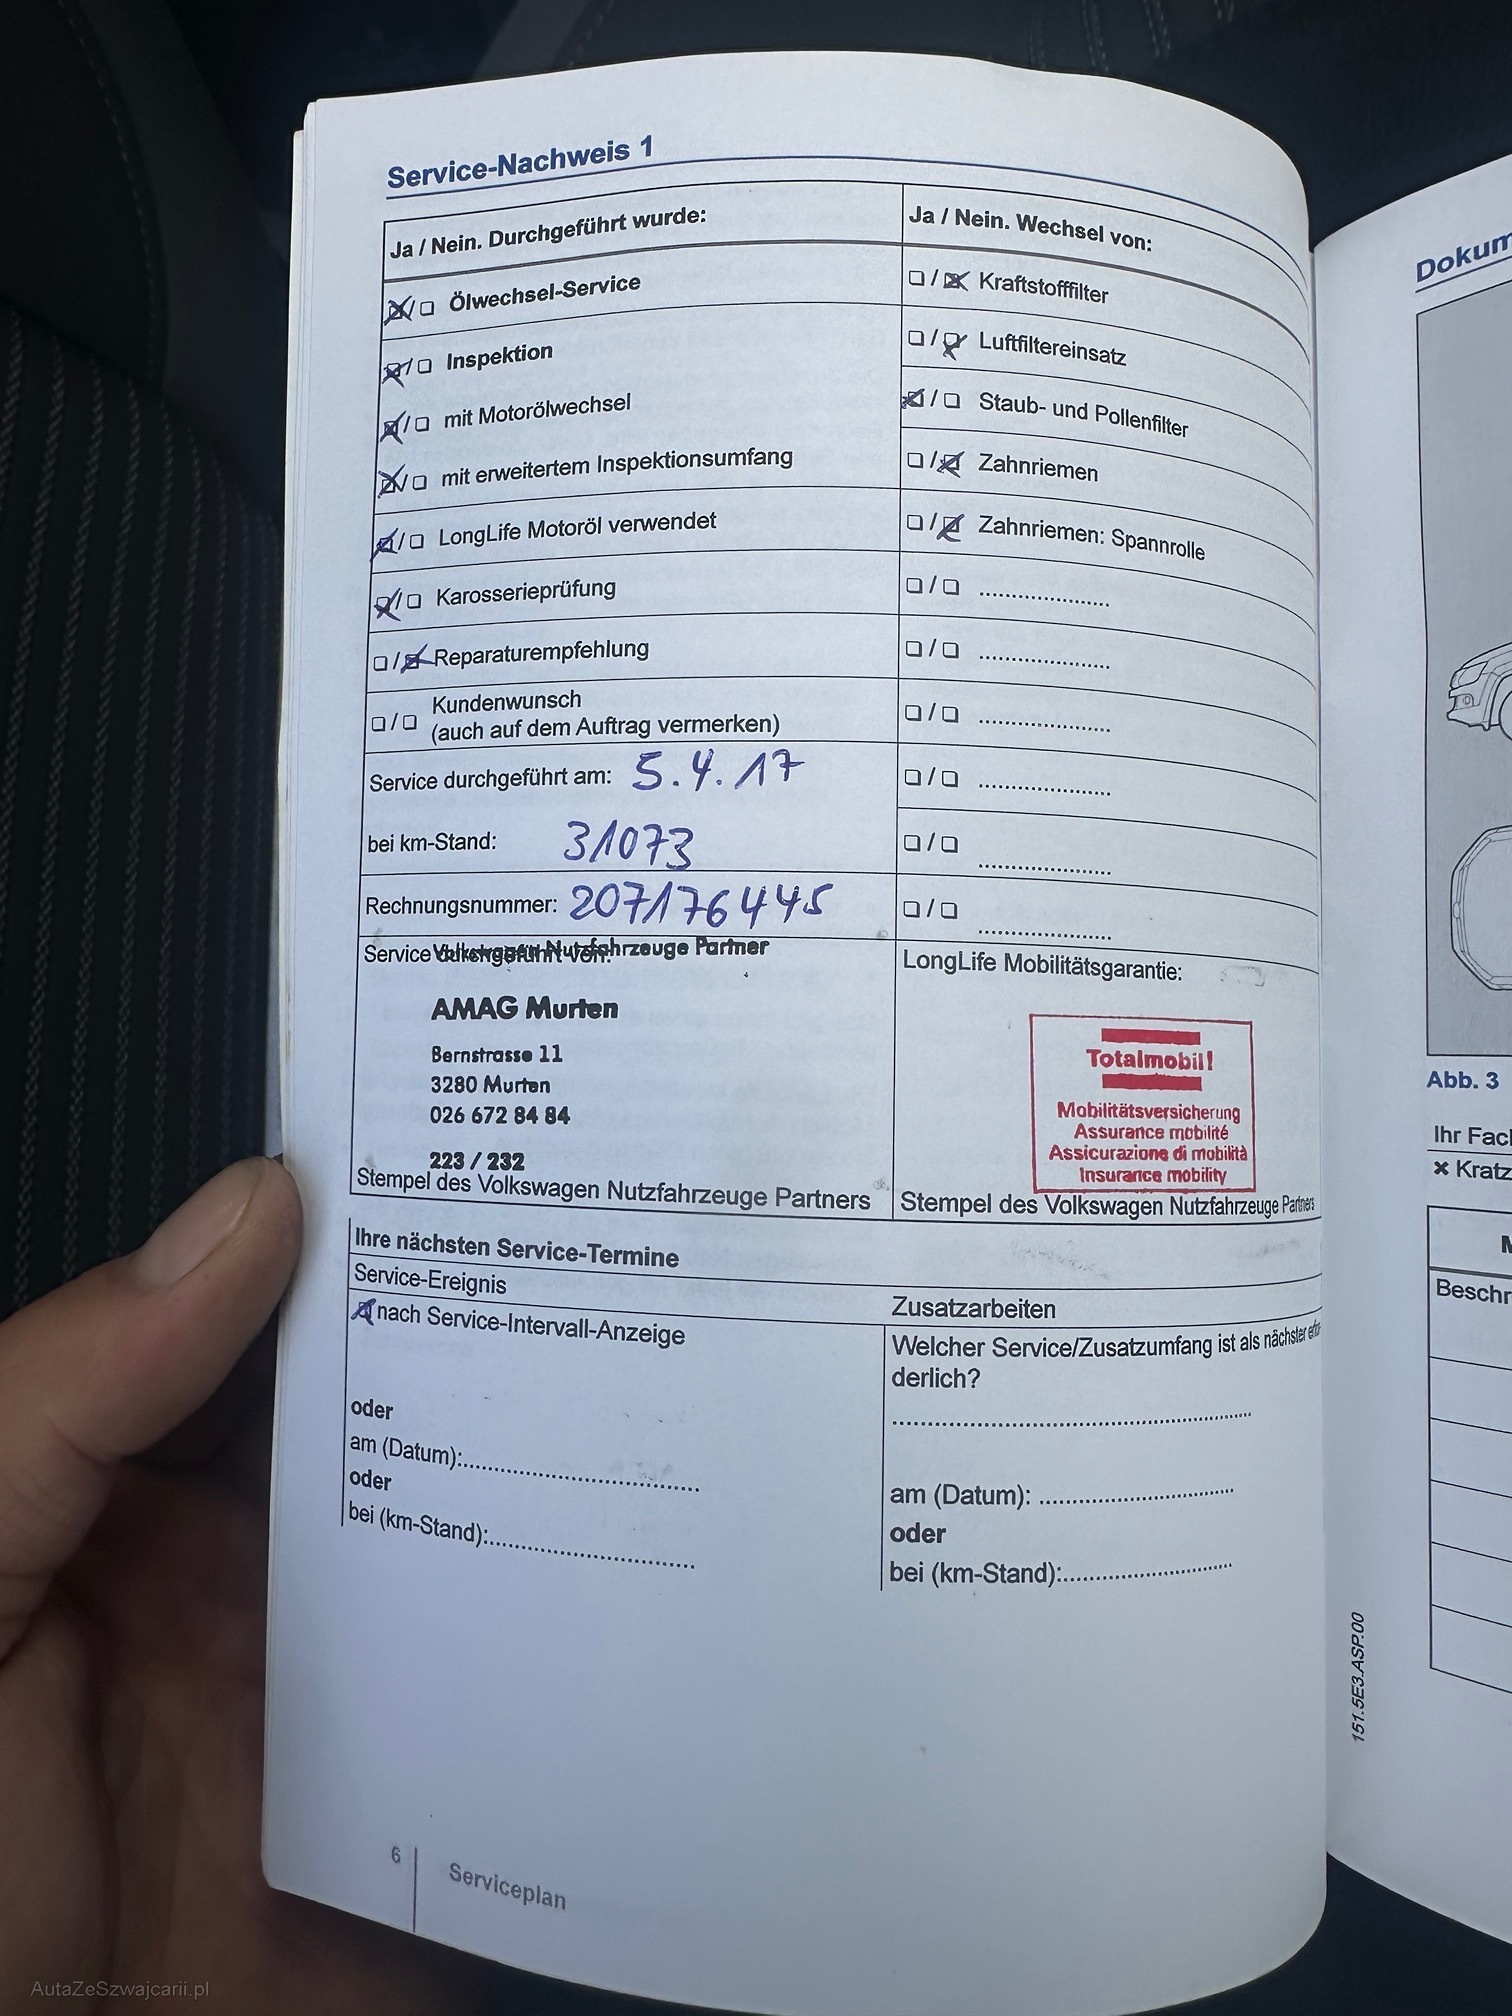 Service-Nachweis 1
Ja / Nein. Durchgeführt wurde:
☒/☐ Ölwechsel-Service
☒/☐ Inspektion
☒/☐ mit Motorölwechsel
☒/☐ mit erweitertem Inspektionsumfang
☒/☐ LongLife Motoröl verwendet
☒/☐ Karosserieprüfung
☐/☒ Reparaturempfehlung
☐/☐ Kundenwunsch
(auch auf dem Auftrag vermerken)
Service durchgeführt am: 5.4.17
bei km-Stand: 31073
Rechnungsnummer: 207176445
Service durchgeführt von:
Volkswagen Nutzfahrzeuge Partner
AMAG Murten
Bernstrasse 11
3280 Murten
026 672 84 84
223 / 232
Stempel des Volkswagen Nutzfahrzeuge Partners
Ja / Nein. Wechsel von:
☐/☒ Kraftstofffilter
☐/☒ Luftfiltereinsatz
☒/☐ Staub- und Pollenfilter
☐/☒ Zahnriemen
☐/☒ Zahnriemen: Spannrolle
☐/☐ ......................
☐/☐ ......................
☐/☐ ......................
☐/☐ ......................
☐/☐ ......................
☐/☐ ......................
LongLife Mobilitätsgarantie:
Totalmobil!
Mobilitätsversicherung
Assurance mobilité
Assicurazione di mobilità
Insurance mobility
Stempel des Volkswagen Nutzfahrzeuge Partners
Ihre nächsten Service-Termine
Service-Ereignis
☒ nach Service-Intervall-Anzeige
oder
am (Datum):......................
oder
bei (km-Stand):......................
Zusatzarbeiten
Welcher Service/Zusatzumfang ist als nächster erfor-
derlich?
......................
am (Datum): ......................
oder
bei (km-Stand):......................
6
Serviceplan
Dokum
Abb. 3
Ihr Fac
× Kratz
Beschr
151.5E3.ASP.00
AutaZeSzwajcarii.pl